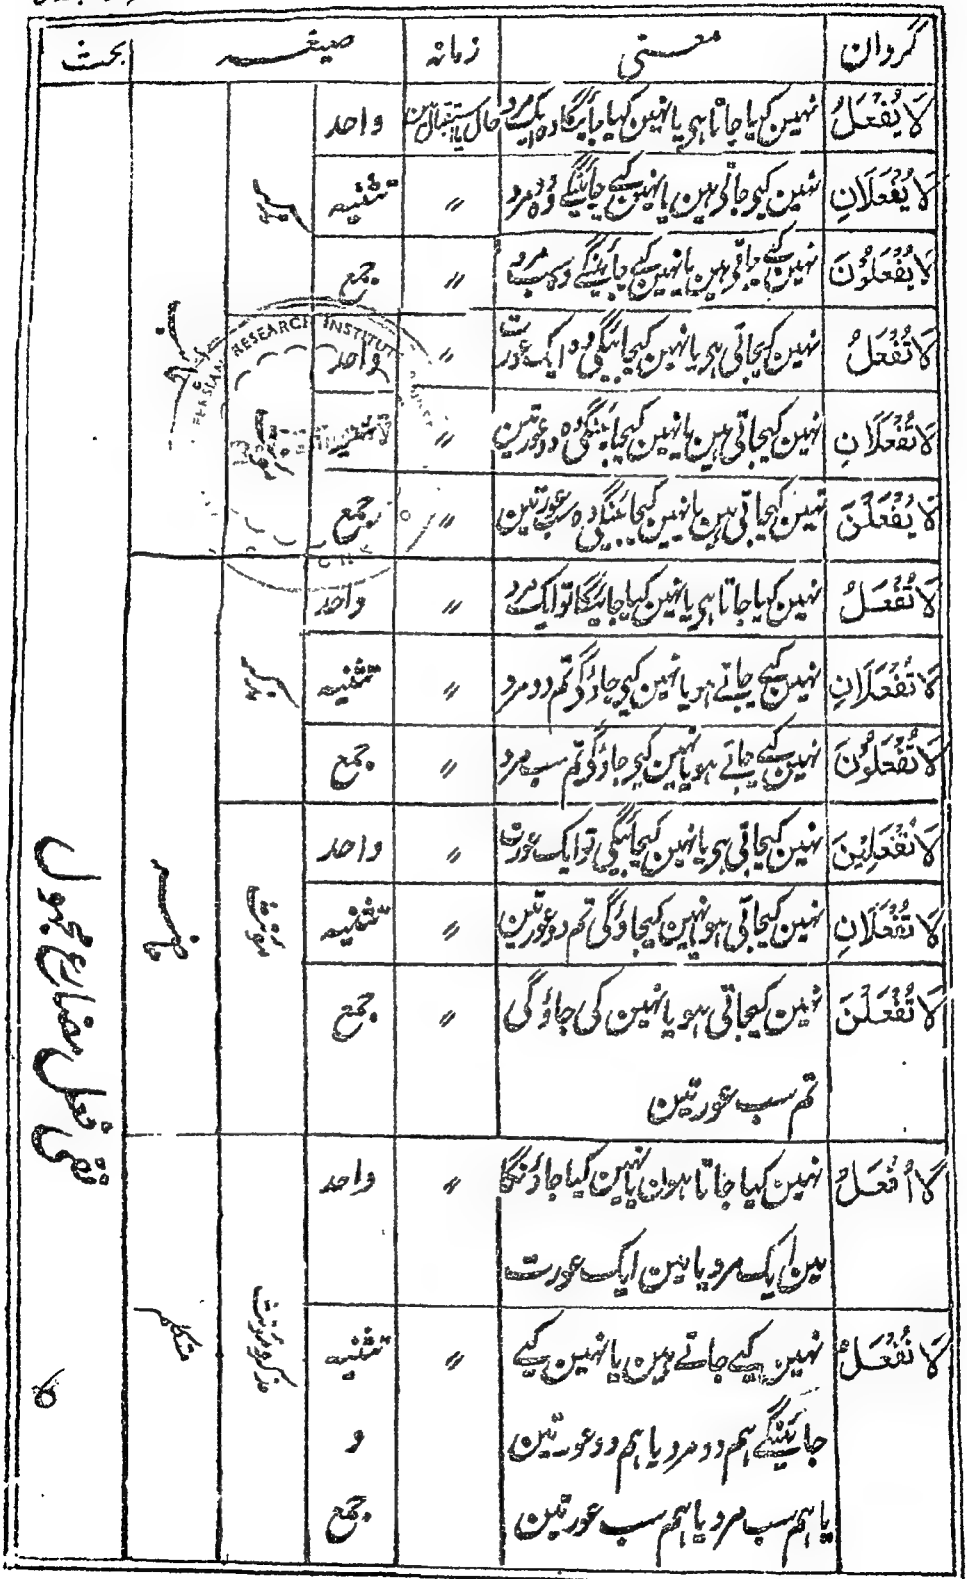 گردان معنی زمانہ صیغہ بحث
لَا يُفْعَلُ نہین کیا جاتا ہی یا نہین کیا جایگا وہ ایک مرد حال یا استقبال مین واحد مذکر غائب نفی فعل مضارع مجہول
لَا يُفْعَلَانِ نہین کیے جاتے ہین یا نہین کیے جاینگے وہ دو مرد 〃 تثنیہ
لَا يُفْعَلُوْنَ نہین کیے جاتے ہین یا نہین کیے جاینگے وہ سب مرد 〃 جمع
لَا تُفْعَلُ نہین کیجاتی ہی یا نہین کیجائیگی وہ ایک عورت 〃 واحد
لَا تُفْعَلَانِ نہین کیجاتی ہین یا نہین کیجاینگی وہ دو عورتین 〃 تثنیہ
لَا يُفْعَلْنَ نہین کیجاتی ہین یا نہین کیجاینگی وہ سب عورتین 〃 جمع
لَا تُفْعَلُ نہین کیا جاتا ہی یا نہین کیا جایگا تو ایک مرد 〃 واحد مذکر حاضر
لَا تُفْعَلَانِ نہین کیے جاتے ہو یا نہین کیے جاؤگے تم دو مرد 〃 تثنیہ
لَا تُفْعَلُوْنَ نہین کیے جاتے ہو یا نہین کیے جاؤگے تم سب مرد 〃 جمع
لَا تُفْعَلِيْنَ نہین کیجاتی ہی یا نہین کیجائیگی تو ایک عورت 〃 واحد مونث
لَا تُفْعَلَانِ نہین کیجاتی ہو یا نہین کیجاؤگی تم دو عورتین 〃 تثنیہ
لَا تُفْعَلْنَ نہین کیجاتی ہو یا نہین کی جاؤگی 〃 جمع
تم سب عورتین
لَا اُفْعَلُ نہین کیا جاتا ہون یا نہین کیا جاؤنگا 〃 واحد مذکر و مونث متکلم
مین ایک مرد یا مین ایک عورت
لَا نُفْعَلُ نہین کیے جاتے ہین یا نہین کیے 〃 تثنیہ
جائینگے ہم دو مرد یا ہم دو عورتین و
یا ہم سب مرد یا ہم سب عورتین جمع
PERSIAN RESEARCH INSTITUT